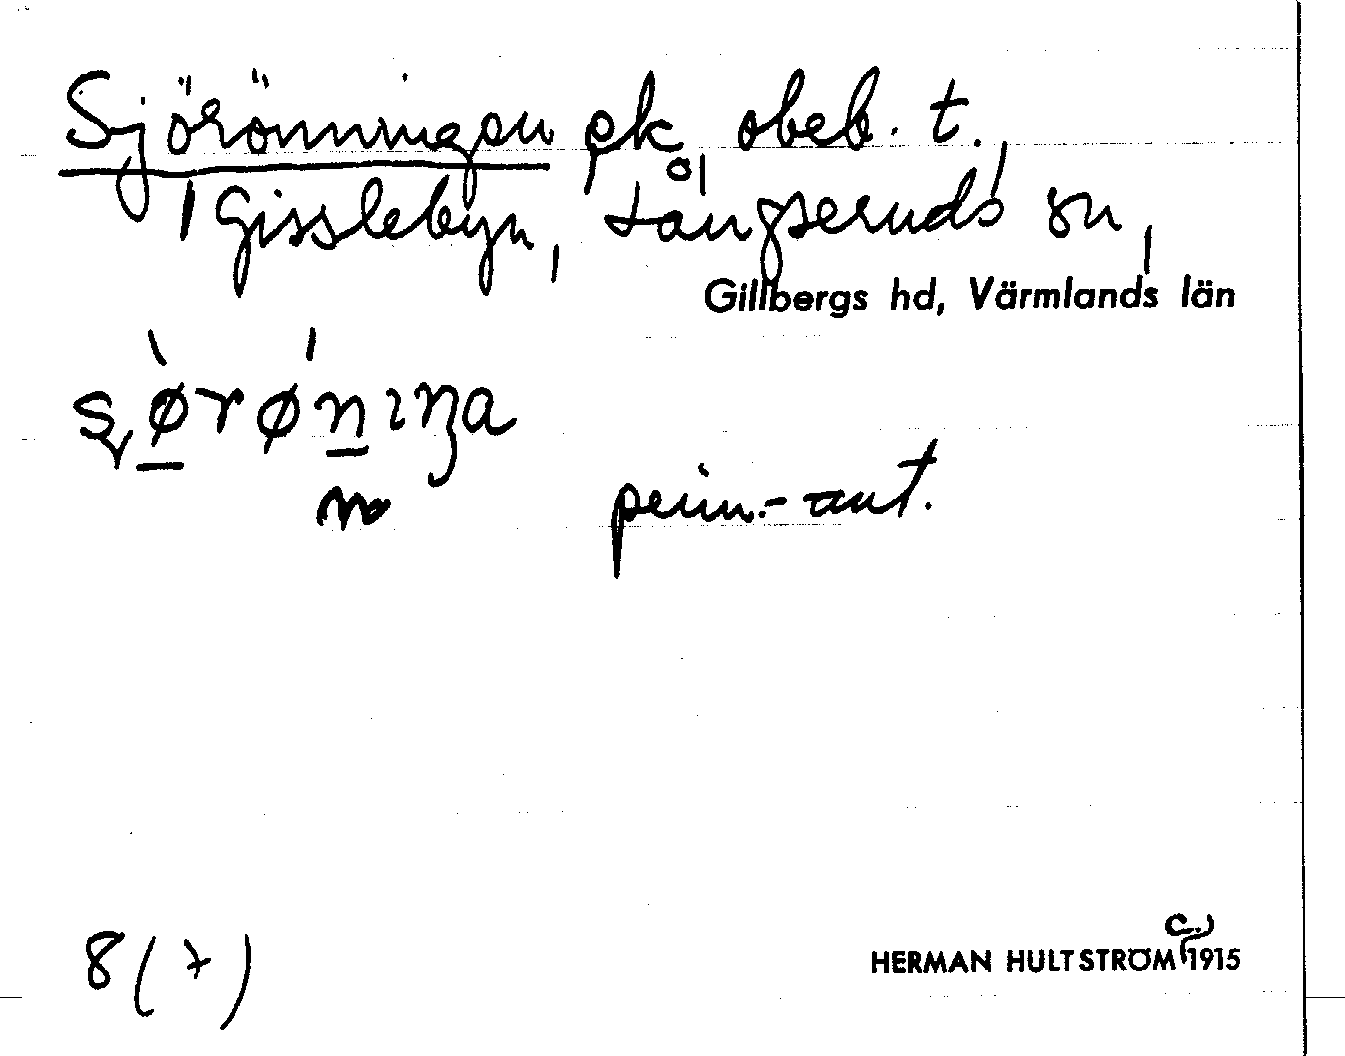 Sjörönningen sk, obeb. t.,
Gisslebyn, Långseruds sn,
Gillbergs hd, Värmlands län
perm.-ant.
8 (7)
c.
HERMAN HULTSTRÖM 1915